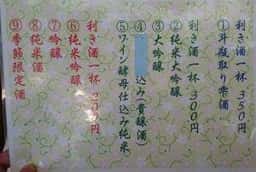 利き酒一杯 350円
①斗瓶取り雫酒
利き酒一杯 300円
②純米大吟醸
③大吟醸
④込み(貴醸酒)
⑤ワイン酵母仕込み純米
利き酒一杯 200円
⑥純米吟醸
⑦吟醸
⑧純米酒
⑨季節限定酒